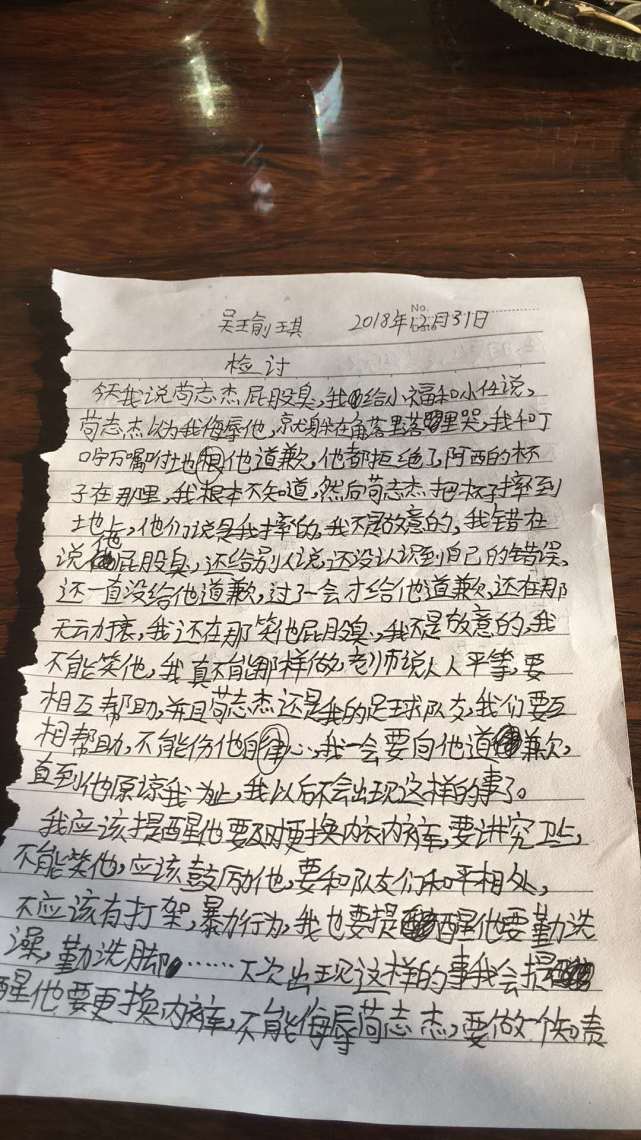 吴王俞琪 2018年12月31日
No.
检讨
今天我说苟志杰屁股臭,我给小福和小任说,
苟志杰以为我侮辱他,京尤身朵在角落里落里哭,我和丁
叮万嘱咐地跟他道歉,他都拒绝了,阿西的杯
子在那里,我根本不知道,然后苟志杰把杯子摔到
地上,他们说是我摔的,我不是故意的,我错在
说他屁股臭,还给别人说,还没认识到自己的错误,
还一直没给他道歉,过了一会才给他道歉,还在那
无动于衷,我还在那笑他屁股臭,我不是故意的,我
不能笑他,我真不能那样做,老师说人人平等,要
相互帮助,并且苟志杰还是我的足球队友,我们要互
相帮助,不能伤他自尊心,我一会要向他道歉,
直到他原谅我为止,我以后不会出现这样的事了。
我应该提醒他要及时更换内衣内裤,要讲究卫生,
不能笑他,应该鼓励他,要和队友们和平相处,
不应该有打架,暴力行为,我也要提醒他要勤洗
澡,勤洗脚……下次出现这样的事我会提
醒他要更换内裤,不能侮辱苟志杰,要做一个负责